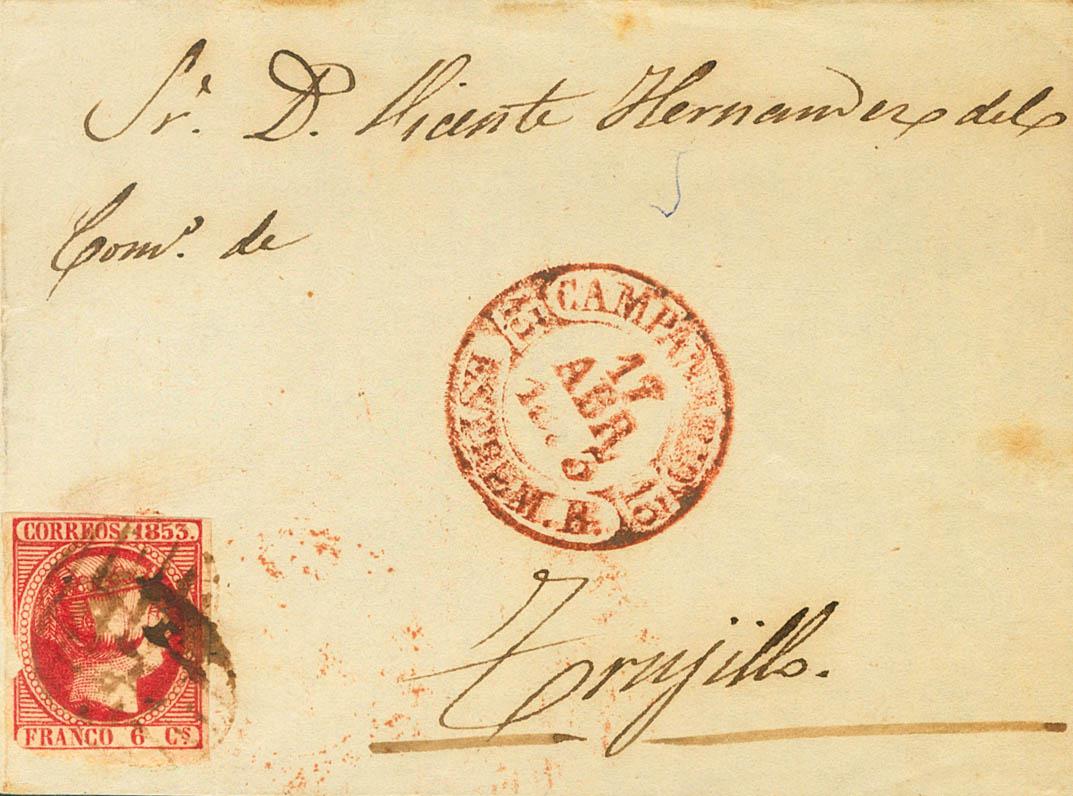 Sr. D. Vicente Hernandez del
Como. de
CAMPAN
17
ABR
CORREOS. 1853.
FRANCO 6 Cs
Trujillo.